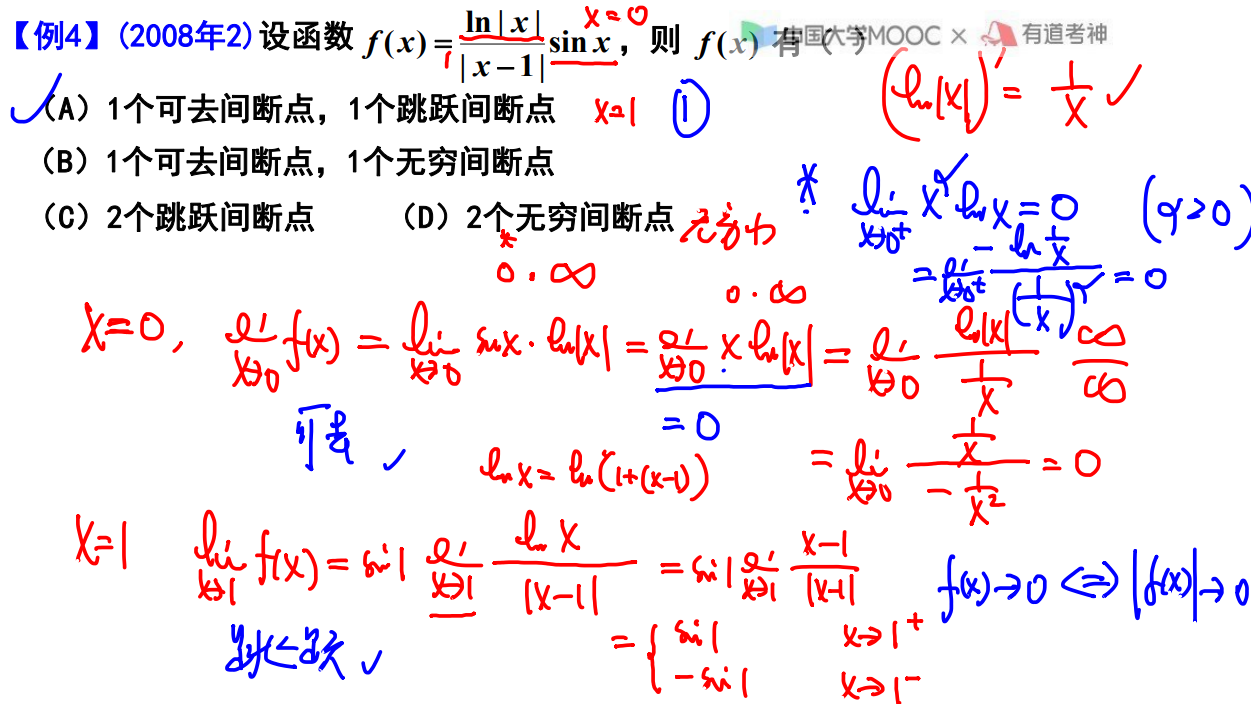 【例4】(2008年2) 设函数 f(x) = ln|x| / |x−1| sin x，则 f(x) 有（ ）
x=0
1
中国大学MOOC × 有道考神
（A）1个可去间断点，1个跳跃间断点 x=1 ①
(ln|x|)' = 1/x ✓
（B）1个可去间断点，1个无穷间断点
（C）2个跳跃间断点 （D）2个无穷间断点
* lim x→0⁺ x^α ln x = 0 (α>0)
= lim x→0⁺ −ln(1/x) / (1/x)^α = 0
0·∞
0·∞
x=0, lim x→0 f(x) = lim x→0 sin x·ln|x| = lim x→0 x ln|x| = lim x→0 ln|x| / (1/x) ∞/∞
= 0
可去 ✓
= lim x→0 (1/x) / (−1/x²) = 0
ln x = ln(1+(x−1))
x=1 lim x→1 f(x) = sin1 lim x→1 ln x / |x−1| = sin1 lim x→1 (x−1) / |x−1|
= { sin1 x→1⁺
−sin1 x→1⁻
跳跃 ✓
f(x)→0 <=> |f(x)|→0